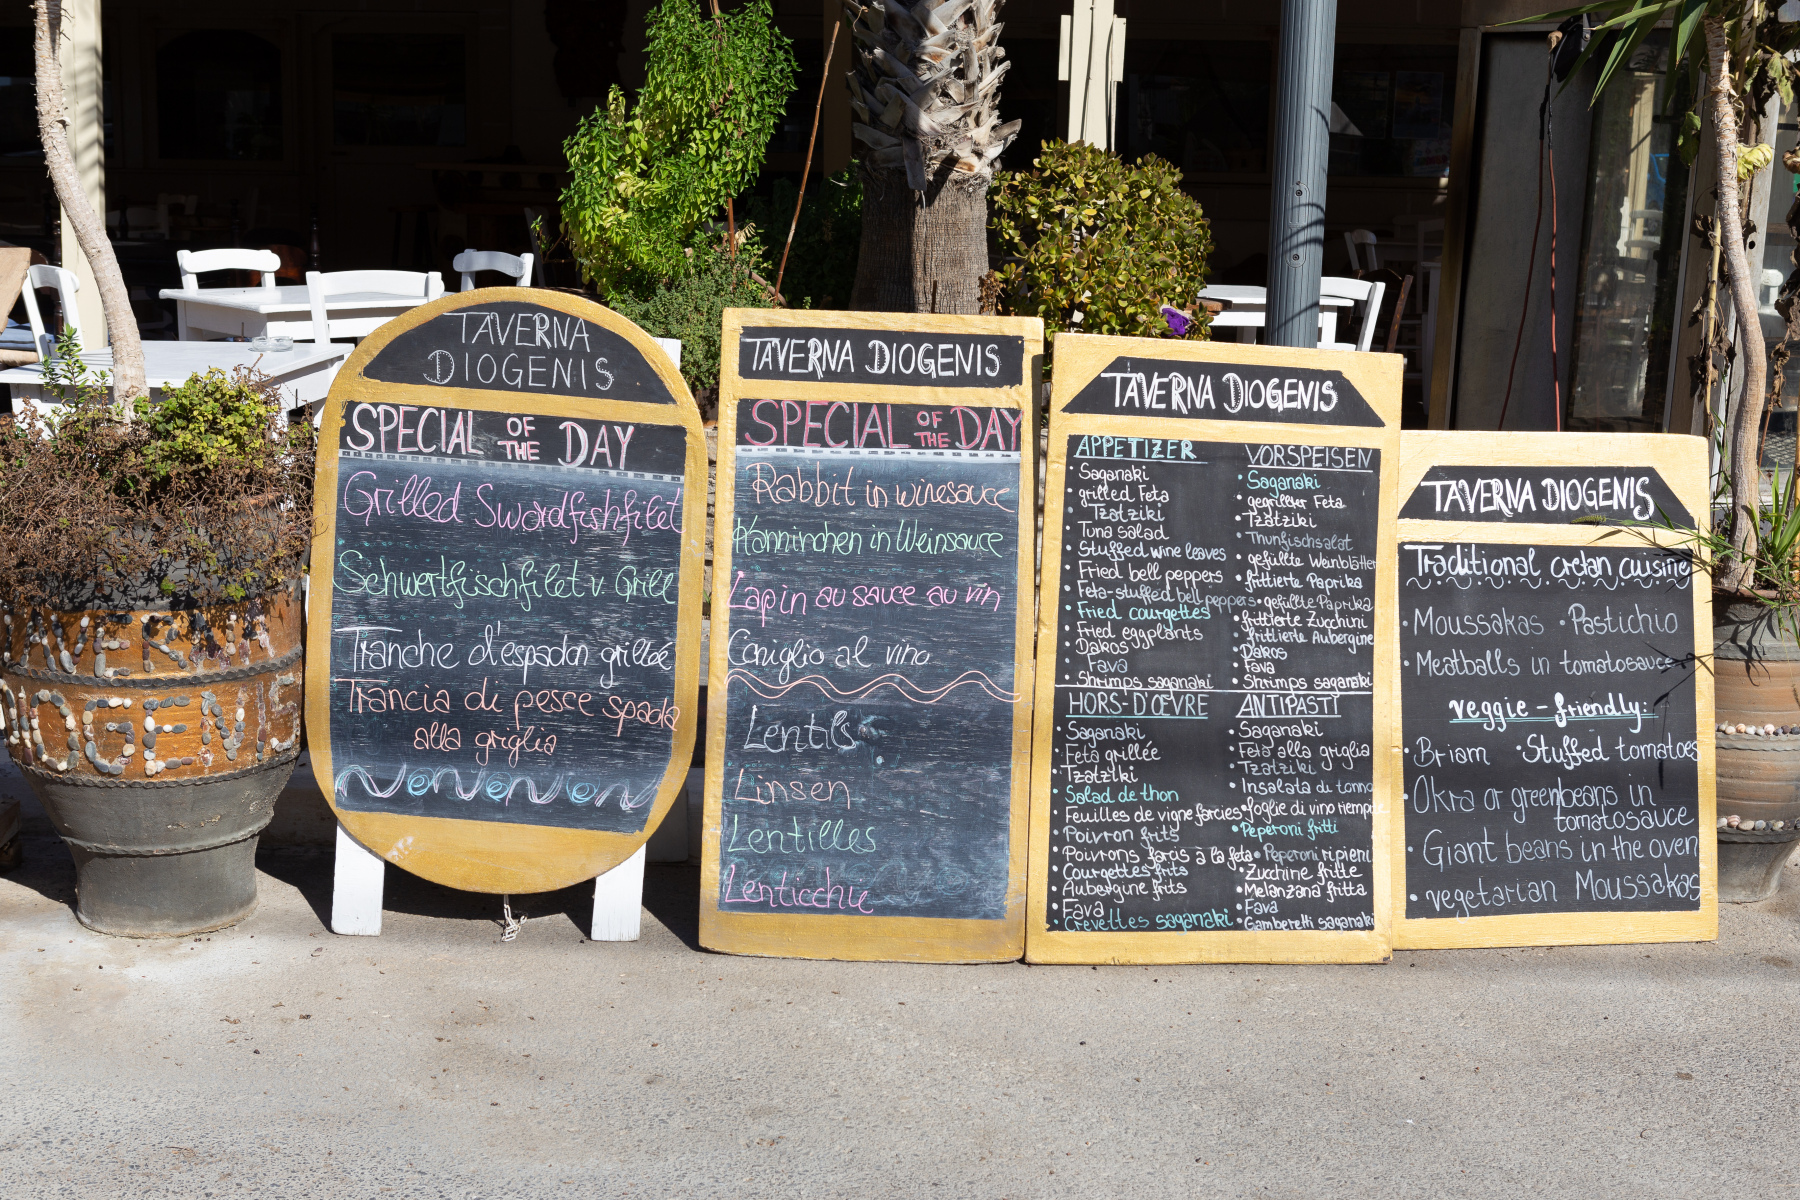 TAVERNA
DIOGENIS
SPECIAL OF THE DAY
Grilled Swordfishfilet
Schwertfischfilet v. Grill
Tranche d'espadon grillée
Trancia di pesce spada
alla griglia
TAVERNA DIOGENIS
SPECIAL OF THE DAY
Rabbit in winesauce
Kanninchen in Weinsauce
Lapin au sauce au vin
Coniglio al vino
Lentils
Linsen
Lentilles
Lenticchie
TAVERNA DIOGENIS
APPETIZER
• Saganaki
• grilled Feta
Tzatziki
Tuna salad
• Stuffed wine leaves
• Fried bell peppers
• Feta-stuffed bell peppers
• Fried courgettes
• Fried eggplants
Dakos
• Fava
• Shrimps saganaki
VORSPEISEN
• Saganaki
• gegrillter Feta
• Tzatziki
• Thunfischsalat
• gefüllte Weinblätter
• frittierte Paprika
• gefüllte Paprika
• frittierte Zucchini
• frittierte Aubergine
• Dakos
• Fava
• Shrimps saganaki
HORS-D'ŒVRE
• Saganaki
• Feta grillée
• Tzatziki
• Salad de thon
• Feuilles de vigne farcies
• Poivron frits
• Poivrons farcis a la feta
• Courgettes frits
• Aubergine frits
• Fava
• Crevettes saganaki
ANTIPASTI
• Saganaki
• Feta alla griglia
• Tzatziki
• Insalata di tonno
• foglie di vino riempite
• Peperoni fritti
• Peperoni ripieni
• Zucchine fritte
• Melanzana fritta
• Fava
• Gamberetti saganaki
TAVERNA DIOGENIS
Traditional cretan cuisine
• Moussakas • Pastichio
• Meatballs in tomatosauce
veggie-friendly:
• Briam • Stuffed tomatoes
• Okra or greenbeans in
tomatosauce
• Giant beans in the oven
• vegetarian Moussakas